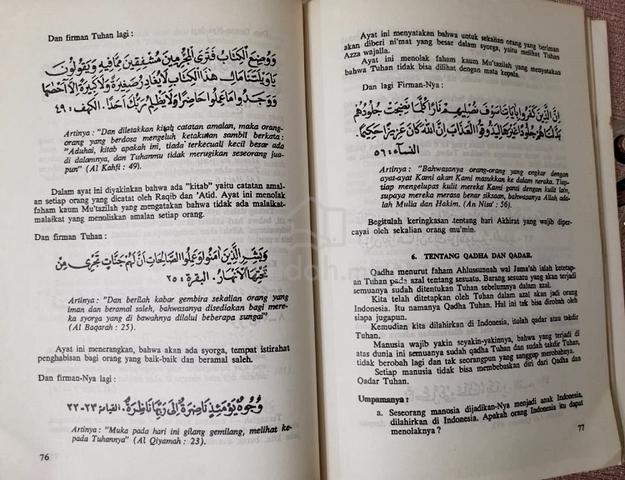 Dan firman Tuhan lagi :
ووضع الكتاب فترى المجرمين مشفقين مما فيه ويقولون
ياويلتنا مال هذا الكتاب لا يغادر صغيرة ولا كبيرة إلا أحصاها
ووجدوا ما عملوا حاضرا ولا يظلم ربك أحدا. الكهف: ٤٩
Artinya : "Dan diletakkan kitab catatan amalan, maka orang-
orang yang berdosa mengeluh ketakutan sambil berkata :
"Aduhai, kitab apakah ini, tiada terkecuali kecil besar ada
di dalamnya, dan Tuhanmu tidak merugikan seseorang jua-
pun" (Al Kahfi : 49).
Dalam ayat ini diyakinkan bahwa ada "kitab" yaitu catatan amal-
an setiap orang yang dicatat oleh Raqib dan 'Atid. Ayat ini menolak
faham kaum Mu'tazilah yang mengatakan bahwa tidak ada malaikat-
malaikat yang menuliskan amalan setiap orang.
Dan firman Tuhan :
وبشر الذين آمنوا وعملوا الصالحات أن لهم جنات تجرى من
تحتها الأنهار. البقرة: ٢٥
Artinya : "Dan berilah kabar gembira sekalian orang yang
iman dan beramal saleh, bahwasanya disediakan bagi mere-
ka syorga yang di bawahnya dilalui beberapa sungai"
(Al Baqarah : 25).
Ayat ini menerangkan, bahwa akan ada syorga, tempat istirahat
penghabisan bagi orang yang baik-baik dan beramal saleh.
Dan firman-Nya lagi :
وجوه يومئذ ناضرة إلى ربها ناظرة. القيامة: ٢٢-٢٣
Artinya : "Muka pada hari ini gilang gemilang, melihat ke-
pada Tuhannya" (Al Qiyamah : 23).
76
Ayat ini menyatakan bahwa untuk sekalian orang yang beriman
akan diberi ni'mat yang besar dalam syorga, yaitu melihat Tuhan
Azza wajalla.
Ayat ini menolak faham kaum Mu'tazilah yang menyatakan
bahwa Tuhan tidak bisa dilihat dengan mata kepala.
Dan lagi Firman-Nya :
إن الذين كفروا بآياتنا سوف نصليهم نارا كلما نضجت جلودهم
بدلناهم جلودا غيرها ليذوقوا العذاب إن الله كان عزيزا حكيما
النساء: ٥٦
Artinya : "Bahwasanya orang-orang yang engkar dengan
ayat-ayat Kami akan Kami masukkan ke dalam neraka. Tiap-
tiap mengelupas kulit mereka Kami ganti dengan kulit lain,
supaya mereka merasa benar siksaan, bahwasanya Allah ada-
lah Mulia dan Hakim. (An Nisa' : 56).
Begitulah keringkasan tentang hari Akhirat yang wajib diper-
cayai oleh sekalian orang mu'min.
6. TENTANG QADHA DAN QADAR.
Qadha menurut faham Ahlussunnah wal Jama'ah ialah ketetap-
an Tuhan pada azal tentang sesuatu. Barang sesuatu yang akan terjadi
semuanya sudah ditentukan Tuhan sebelumnya dalam azal.
Kita telah ditetapkan oleh Tuhan dalam azal akan jadi orang
Indonesia. Itu namanya Qadha Tuhan. Hal ini tak bisa dirobah oleh
siapa jugapun.
Kemudian kita dilahirkan di Indonesia, itulah qadar atau takdir
Tuhan.
Manusia wajib yakin seyakin-yakinnya, bahwa yang terjadi di
atas dunia ini semuanya sudah qadha Tuhan dan sudah takdir Tuhan,
tidak berobah lagi dan tak seorangpun yang sanggup merobahnya.
Setiap manusia tidak bisa membebaskan diri dari Qadha dan
Qadar Tuhan.
Umpamanya :
a. Seseorang manusia dijadikan-Nya menjadi anak Indonesia,
dilahirkan di Indonesia. Apakah orang Indonesia itu dapat
menolaknya ?
77